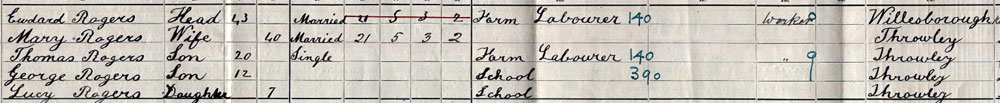 Edward Rogers Head 43 Married 21 5 3 2 Farm Labourer 140 Worker 8 Willesborough
Mary Rogers Wife 40 Married 21 5 3 2 Throwley
Thomas Rogers Son 20 Single Farm Labourer 140 " 9 Throwley
George Rogers Son 12 School 390 Throwley
Lucy Rogers Daughter 7 School Throwley